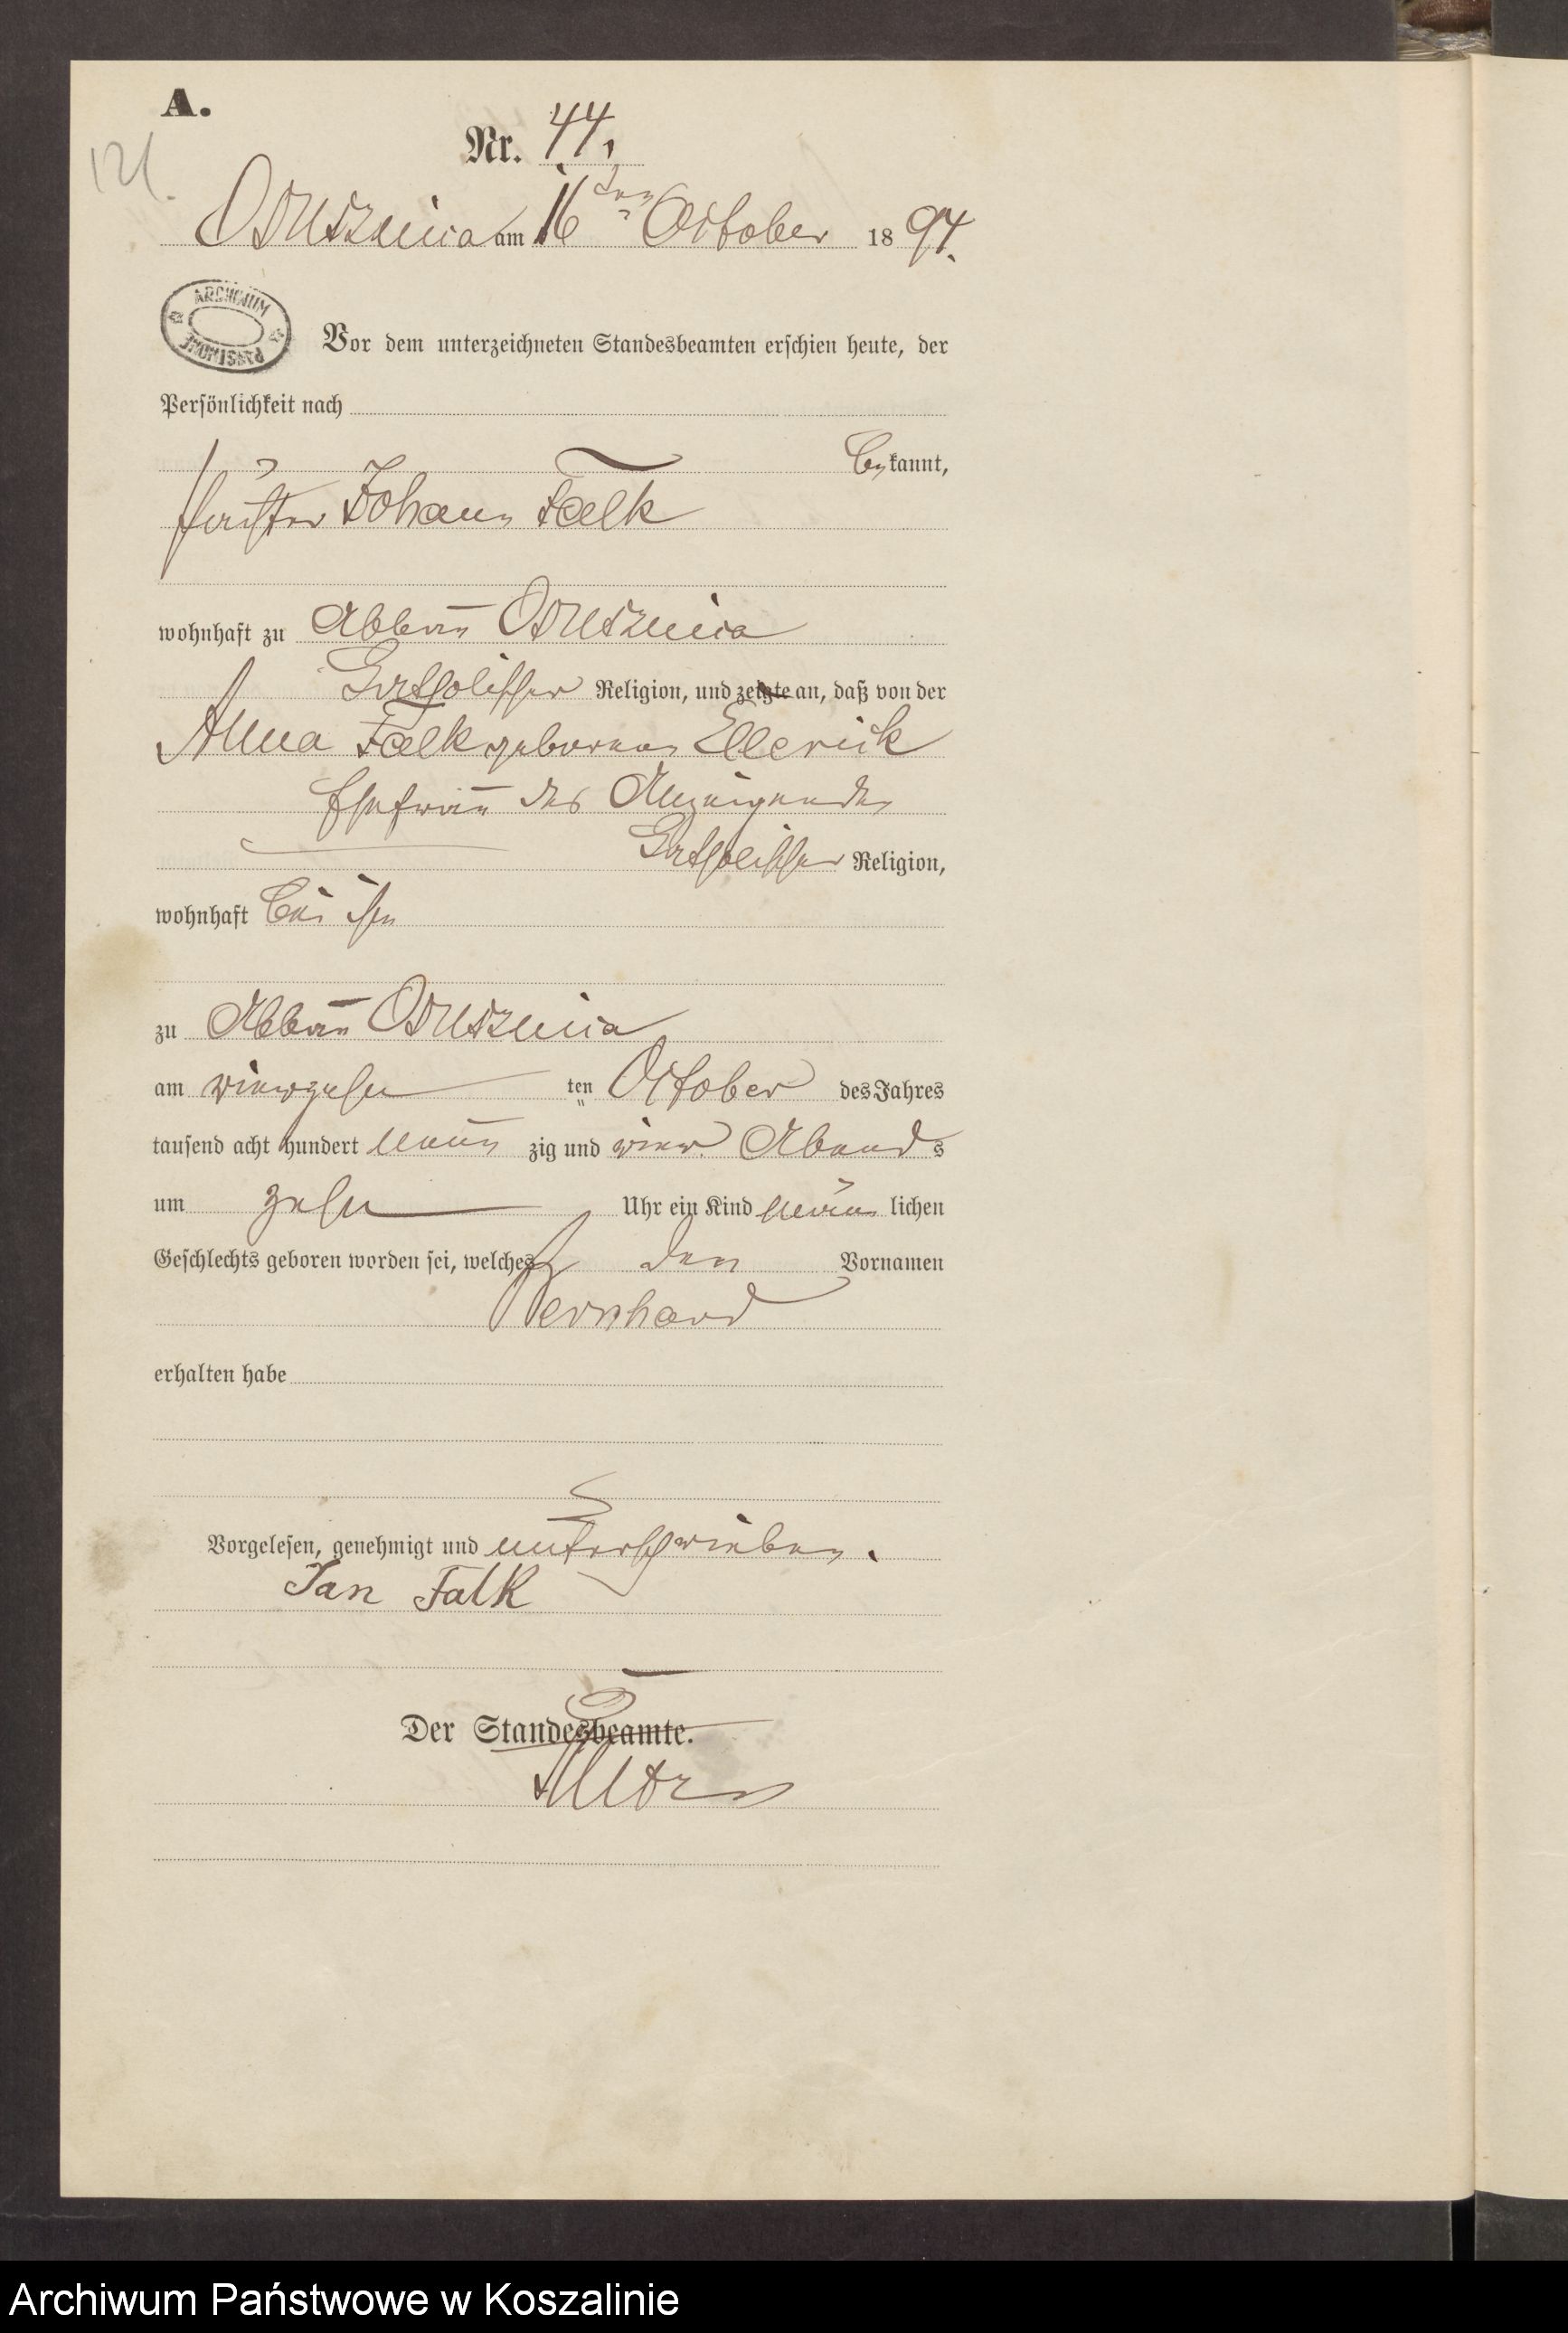 A.
121.
Nr. 44.
Ossusznica am 16ten October 1894.
ARCHIWUM PAŃSTWOWE
Vor dem unterzeichneten Standesbeamten erschien heute, der
Persönlichkeit nach
bekannt,
Johann Falk
wohnhaft zu Abbau Ossusznica
katholischer Religion, und zeigte an, daß von der
Anna Falk geborenen Ellerick
Ehefrau des Anzeigenden
katholischer Religion,
wohnhaft bei ihm
zu Abbau Ossusznica
am vierzehn ten October des Jahres
tausend acht hundert neun zig und vier Abends
um zehn Uhr ein Kind männlichen
Geschlechts geboren worden sei, welches den Vornamen
Bernhard
erhalten habe
Vorgelesen, genehmigt und unterschrieben.
Jan Falk
Der Standesbeamte.
Archiwum Państwowe w Koszalinie